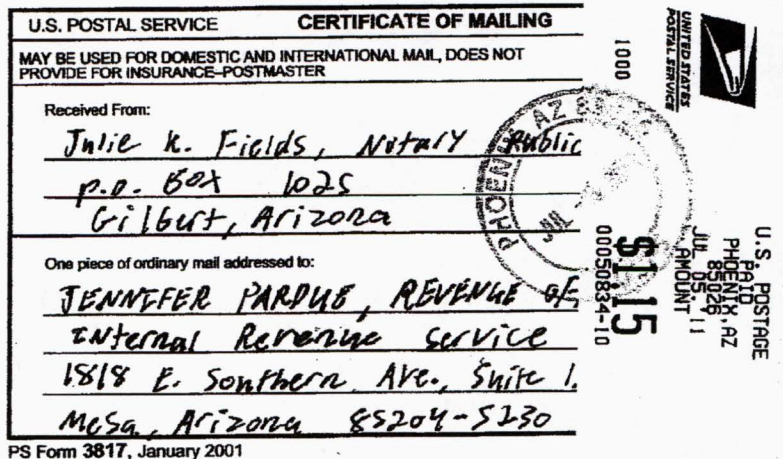 U.S. POSTAL SERVICE CERTIFICATE OF MAILING
MAY BE USED FOR DOMESTIC AND INTERNATIONAL MAIL, DOES NOT
PROVIDE FOR INSURANCE–POSTMASTER
Received From:
Julie K. Fields, Notary Public
P.O. Box 1025
Gilbert, Arizona
One piece of ordinary mail addressed to:
JENNIFER PARDUE, REVENUE OF
Internal Revenue Service
1818 E. Southern Ave., Suite 1.
Mesa, Arizona 85204-5230
PS Form 3817, January 2001
UNITED STATES
POSTAL SERVICE
1000
PHOENIX AZ
JUL
U.S. POSTAGE
PAID
PHOENIX, AZ
85026
JUL 05, 11
AMOUNT
$1.15
00050834-10